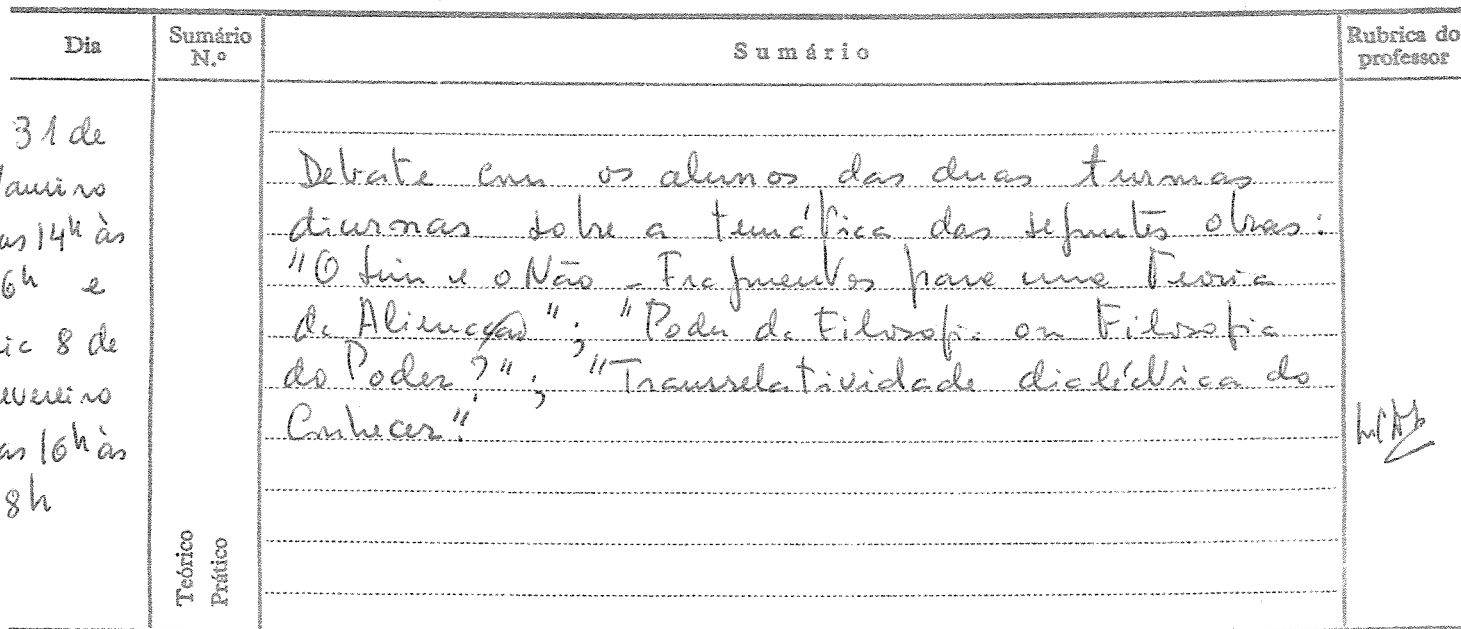 Dia
Sumário
N.º
Sumário
Rubrica do
professor
31 de
Janeiro
as 14h às
6h e
8 de
evereiro
as 16h às
8h
Debate com os alunos das duas turmas
diurnas sobre a temática das seguintes obras:
"O Sim e o Não - Fragmentos para uma Teoria
da Alienação"; "Poder da Filosofia ou Filosofia
do Poder?"; "Transrelatividade dialéctica do
Conhecer".
Teórico
Prático